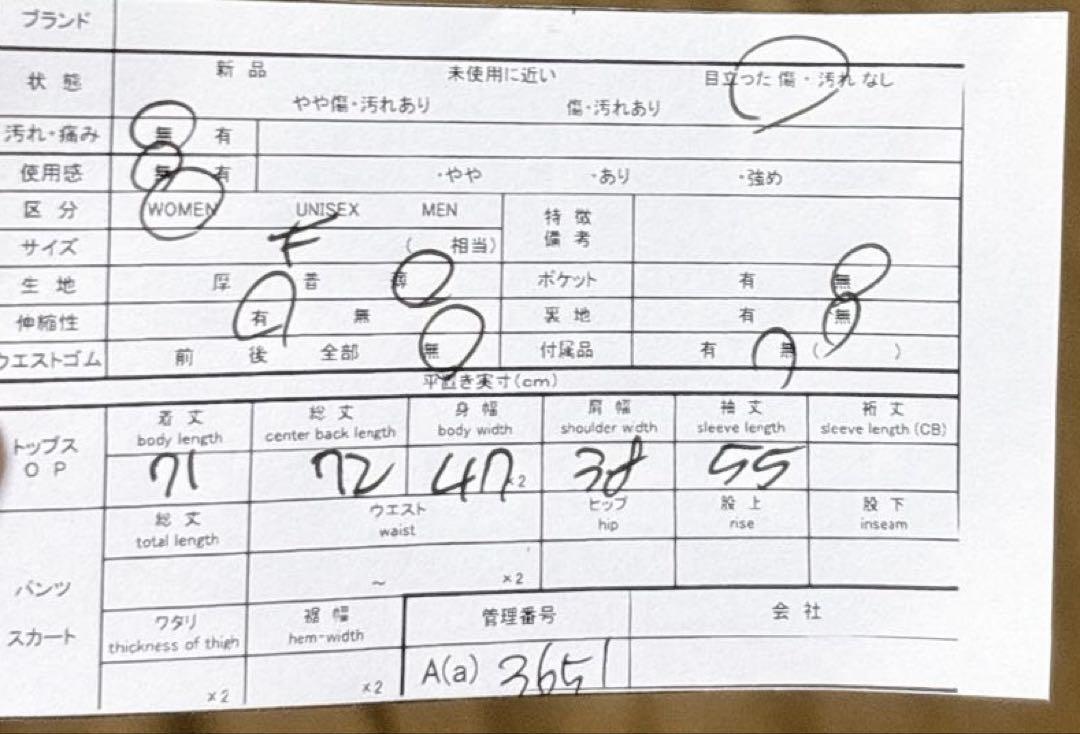 ブランド
状態 新品 未使用に近い 目立った傷・汚れなし
やや傷・汚れあり 傷・汚れあり
汚れ・痛み 無 有
使用感 無 有 ・やや ・あり ・強め
区分 WOMEN UNISEX MEN 特徴
備考
サイズ F ( 相当)
生地 厚 普 薄 ポケット 有 無
伸縮性 有 無 裏地 有 無
ウエストゴム 前 後 全部 無 付属品 有 無 ( )
平置き実寸(cm)
トップス
OP
着丈 総丈 身幅 肩幅 袖丈 裄丈
body length center back length body width shoulder wdth sleeve length sleeve length (CB)
71 72 47 ×2 38 55
総丈 ウエスト ヒップ 股上 股下
total length waist hip rise inseam
パンツ ~ ×2
スカート
ワタリ 裾幅 管理番号 会社
thickness of thigh hem-width
×2 ×2 A(a) 3651